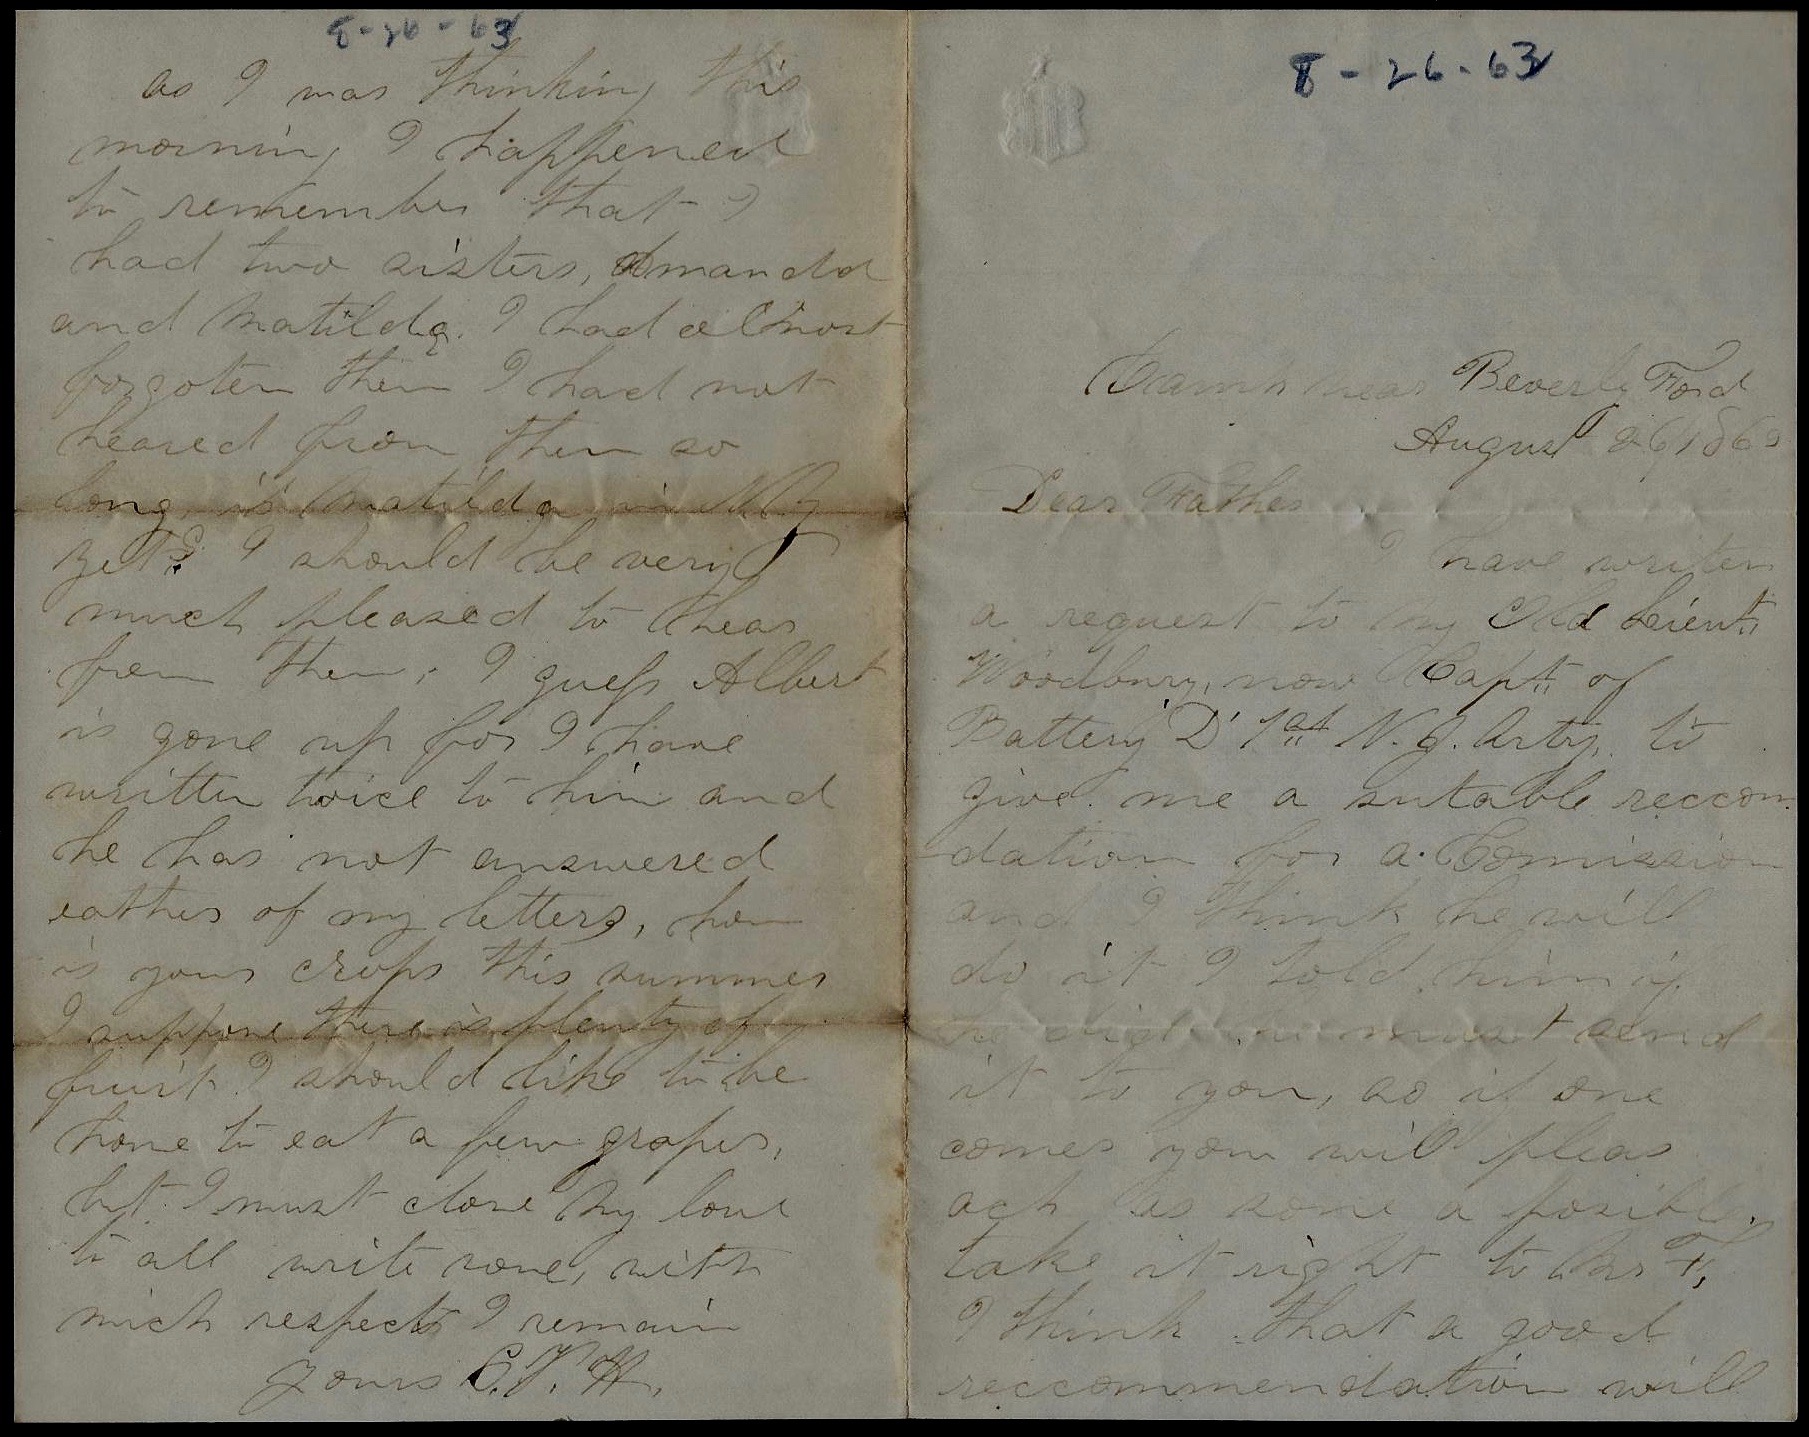 8-26-63
Camp near Beverly Ford
August 26, 1863
Dear Father
I have writen
a request to my Old Leient.
Woodbury, now Capt. of
Battery D' 1st N.J. Arty, to
give me a sutable reccom-
dation for a Comission
and I think he will
do it I told him if
he did he must send
it to you, so if one
comes you will pleas
ach as sone a posible,
take it right to Mr F,
I think that a good
reccommendation will
8-26-63
as I was thinking this
morning I happened
to remember that I
had two sisters, Amanda
and Matilda. I had almost
forgoten them I had not
heared from them so
long, is Matilda in N.Y
yet? I should be very
much pleased to hear
from them, I guess Albert
is gone up for I have
written twice to him and
he has not answered
eather of my letters, how
is your crops this summer
I suppose there is plenty of
fruit I should like to be
home to eat a few grapes,
but I must close my love
to all write sone, with
mich respects I remain
yours C.V.H.